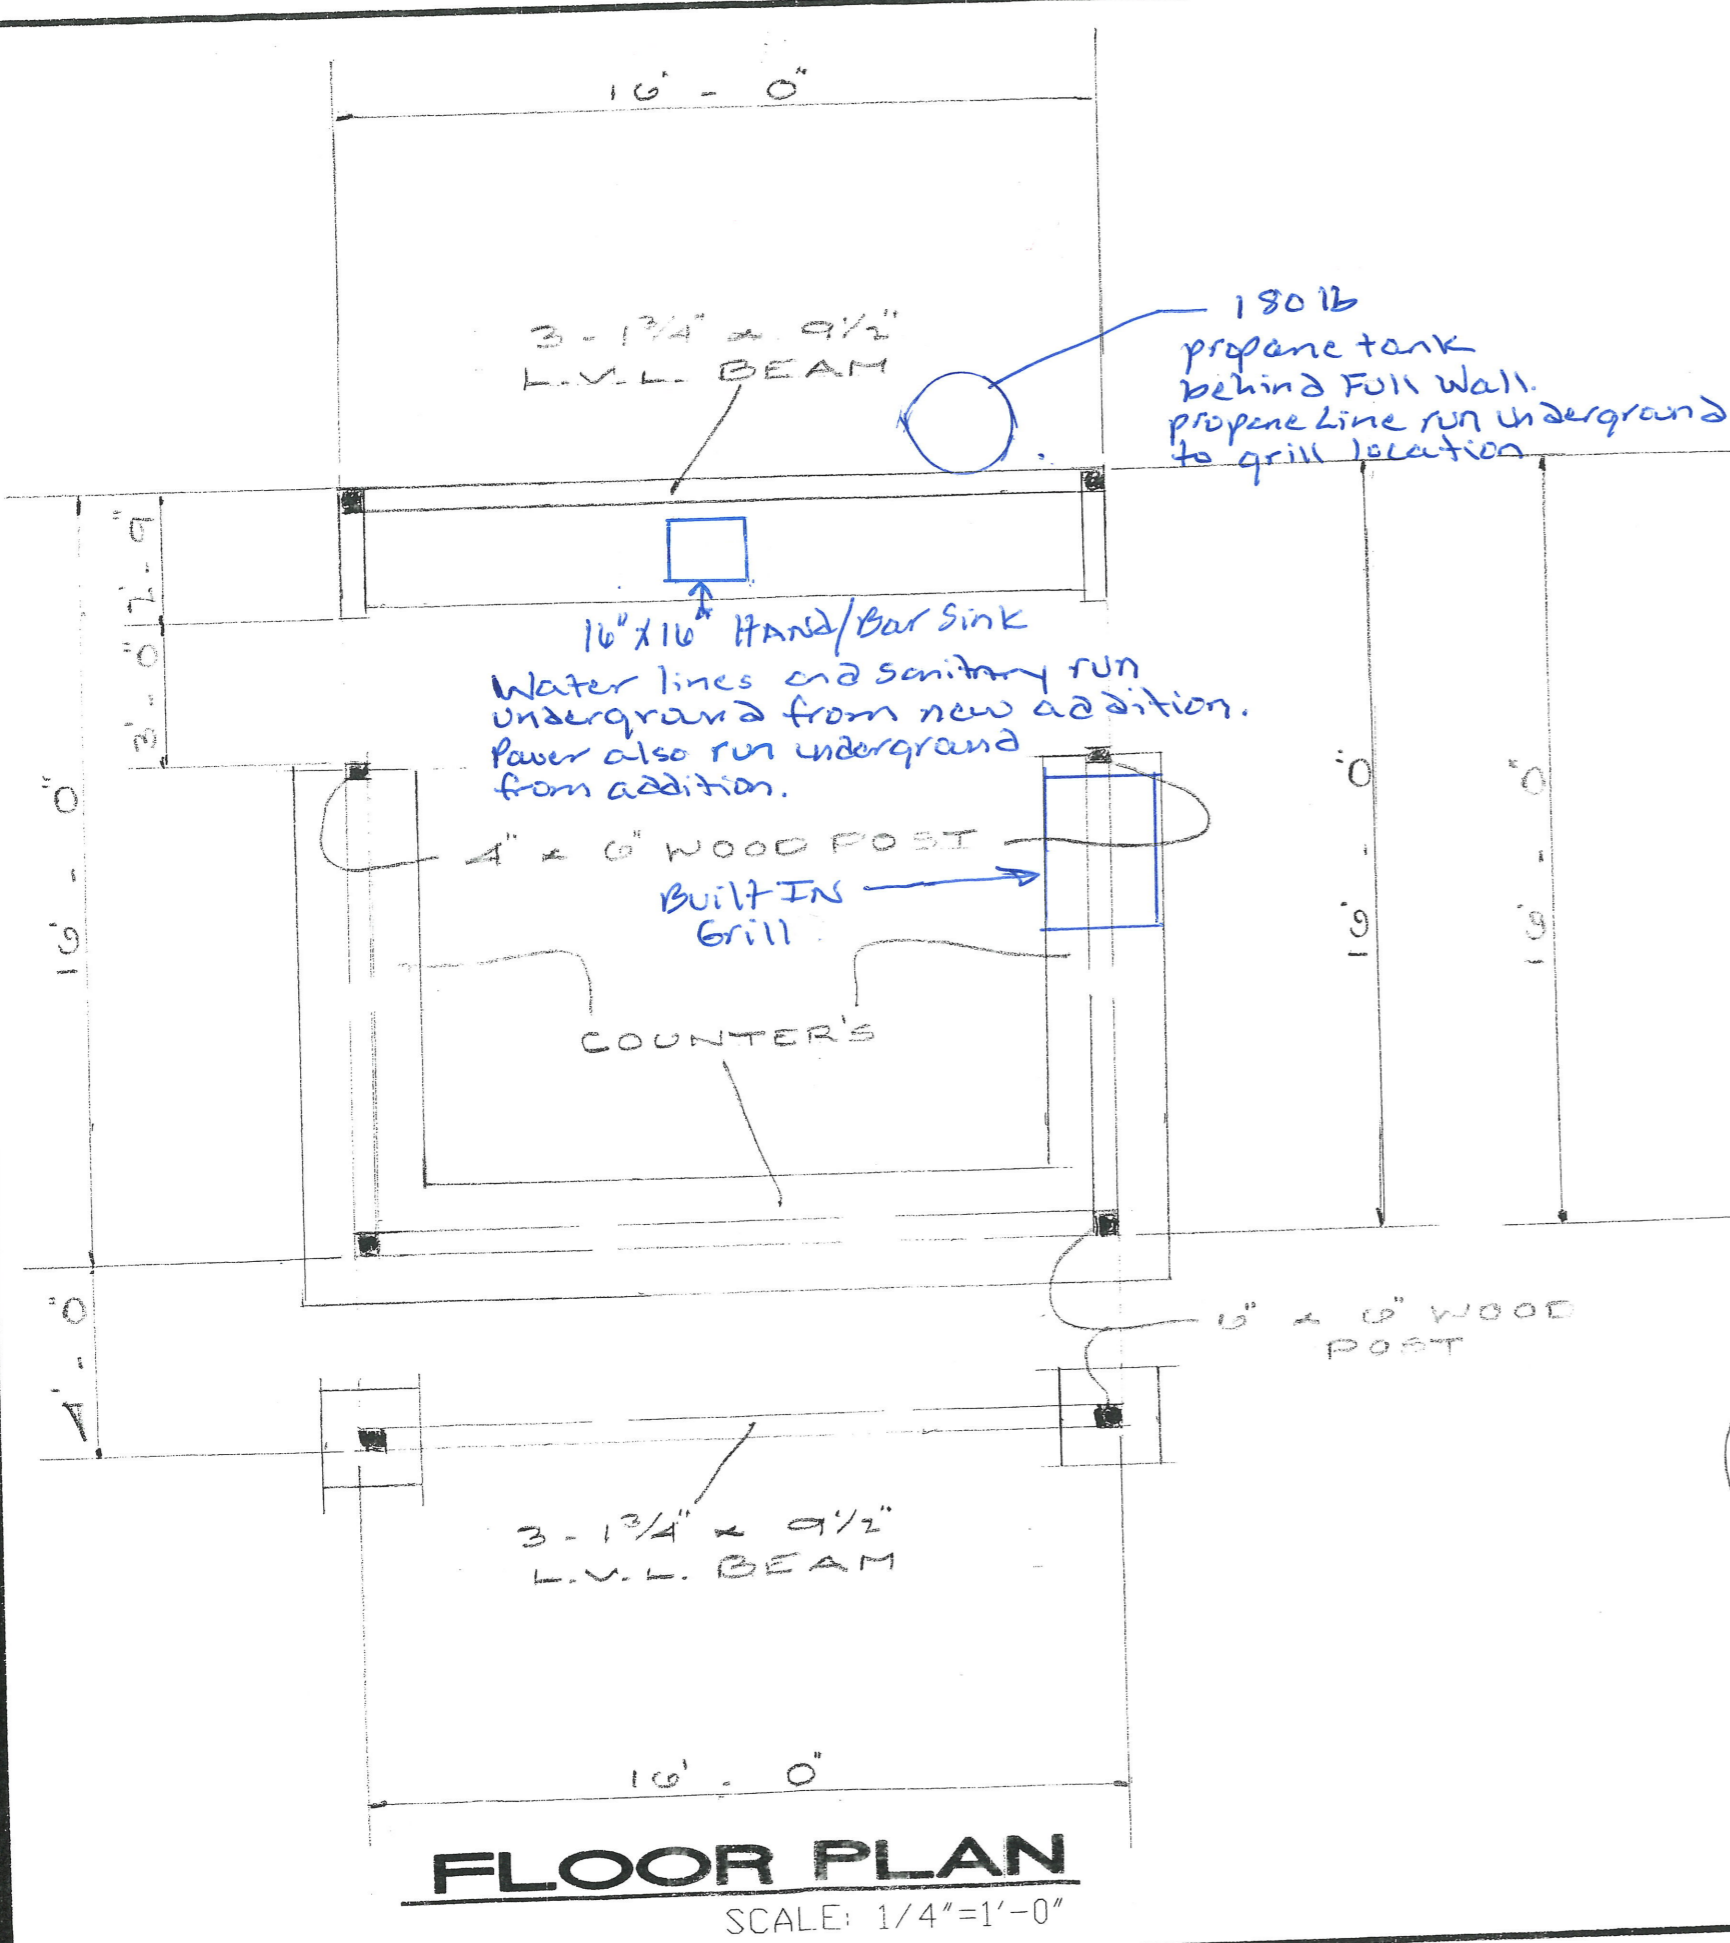 16' - 0"
3 - 1 3/4" x 9 1/2"
L.V.L. BEAM
180 lb
propane tank
behind Full Wall.
propane Line run underground
to grill location
2' - 9"
3' - 0"
16' - 0"
16' - 0"
16' - 0"
16" x 16" HAND/Bar Sink
Water lines and sanitary run
underground from new addition.
Power also run underground
from addition.
4" x 6" WOOD POST
Built IN
Grill
COUNTER'S
4' - 0"
6" x 6" WOOD
POST
3 - 1 3/4" x 9 1/2"
L.V.L. BEAM
16' - 0"
FLOOR PLAN
SCALE: 1/4"=1'-0"